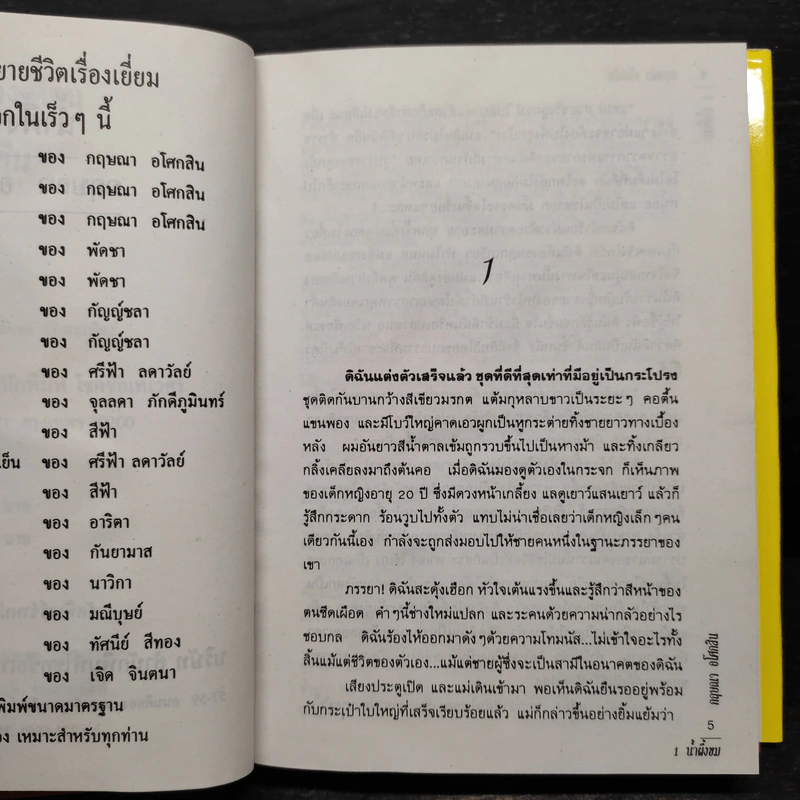 ยายชีวิตเรื่องเยี่ยม
กในเร็วๆ นี้
ของ กฤษณา อโศกสิน
ของ กฤษณา อโศกสิน
ของ กฤษณา อโศกสิน
ของ พัดชา
ของ พัดชา
ของ กัญญ์ชลา
ของ กัญญ์ชลา
ของ ศรีฟ้า ลดาวัลย์
ของ จุลลดา ภักดีภูมินทร์
ของ สีฟ้า
เย็น ของ ศรีฟ้า ลดาวัลย์
ของ สีฟ้า
ของ อาริตา
ของ กันยามาส
ของ นาวิกา
ของ มณีบุษย์
ของ ทัศนีย์ สีทอง
ของ เจิด จินตนา
พิมพ์ขนาดมาตรฐาน
ง เหมาะสำหรับทุกท่าน
1
ดิฉันแต่งตัวเสร็จแล้ว ชุดที่ดีที่สุดเท่าที่มีอยู่เป็นกระโปรง
ชุดติดกันบานกว้างสีเขียวมรกต แต้มกุหลาบขาวเป็นระยะๆ คอตื้น
แขนพอง และมีโบว์ใหญ่คาดเอวผูกเป็นหูกระต่ายทิ้งชายยาวทางเบื้อง
หลัง ผมอันยาวสีน้ำตาลเข้มถูกรวบขึ้นไปเป็นหางม้า และทิ้งเกลียว
กลิ้งเคลียลงมาถึงต้นคอ เมื่อดิฉันมองดูตัวเองในกระจก ก็เห็นภาพ
ของเด็กหญิงอายุ 20 ปี ซึ่งมีดวงหน้าเกลี้ยง แลดูเยาว์แสนเยาว์ แล้วก็
รู้สึกกระดาก ร้อนวูบไปทั้งตัว แทบไม่น่าเชื่อเลยว่าเด็กหญิงเล็กๆคน
เดียวกันนี้เอง กำลังจะถูกส่งมอบไปให้ชายคนหนึ่งในฐานะภรรยาของ
เขา
ภรรยา! ดิฉันสะดุ้งเฮือก หัวใจเต้นแรงขึ้นและรู้สึกว่าสีหน้าของ
ตนซีดเผือด คำๆนี้ช่างใหม่แปลก และระคนด้วยความน่ากลัวอย่างไร
ชอบกล ดิฉันร้องไห้ออกมาดังๆด้วยความโทมนัส...ไม่เข้าใจอะไรทั้ง
สิ้นแม้แต่ชีวิตของตัวเอง...แม้แต่ชายผู้ซึ่งจะเป็นสามีในอนาคตของดิฉัน
เสียงประตูเปิด และแม่เดินเข้ามา พอเห็นดิฉันยืนรออยู่พร้อม
กับกระเป๋าใบใหญ่ที่เสร็จเรียบร้อยแล้ว แม่ก็กล่าวขึ้นอย่างยิ้มแย้มว่า
กฤษณา อโศกสิน
5
1 น้ำผึ้งขม